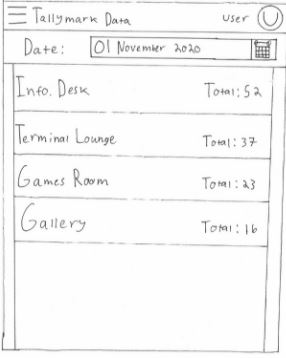 Tallymark Data User U
Date: 01 November 2020
Info. Desk Total: 52
Terminal Lounge Total: 37
Games Room Total: 23
Gallery Total: 16